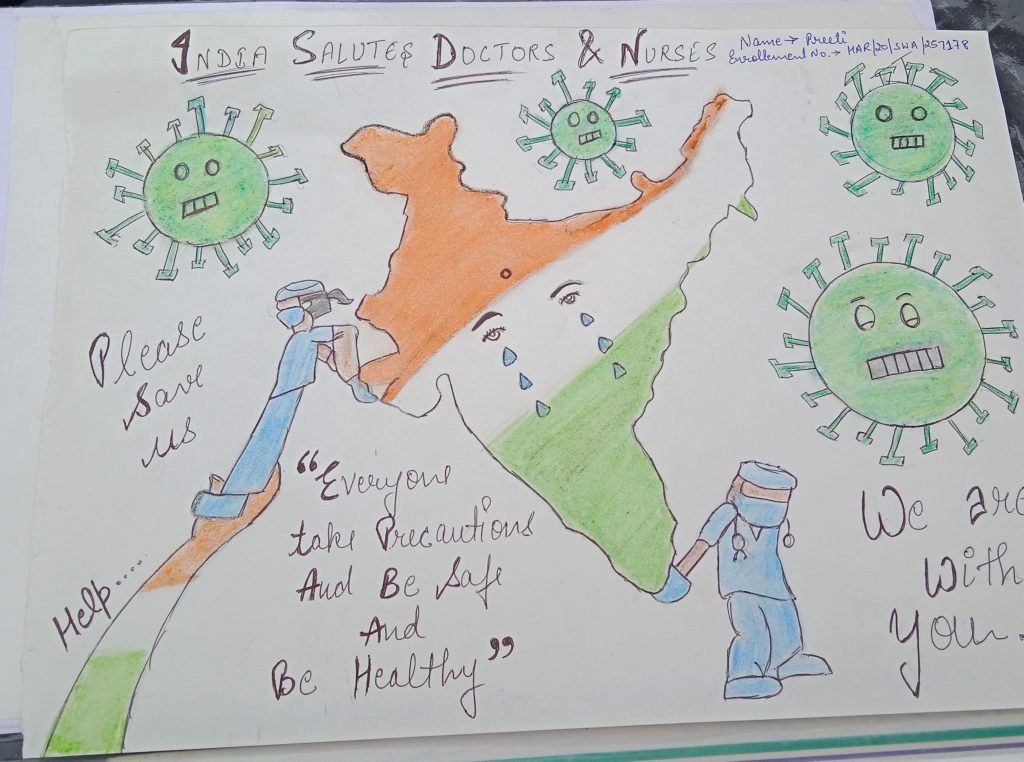 INDIA SALUTES DOCTORS & NURSES
Name → Preeti
Enrollement No. → HAR/20/SWA/257178
Please
Save
us
Help....
"Everyone
take Precautions
And Be Safe
And
Be Healthy"
We are
With
you.